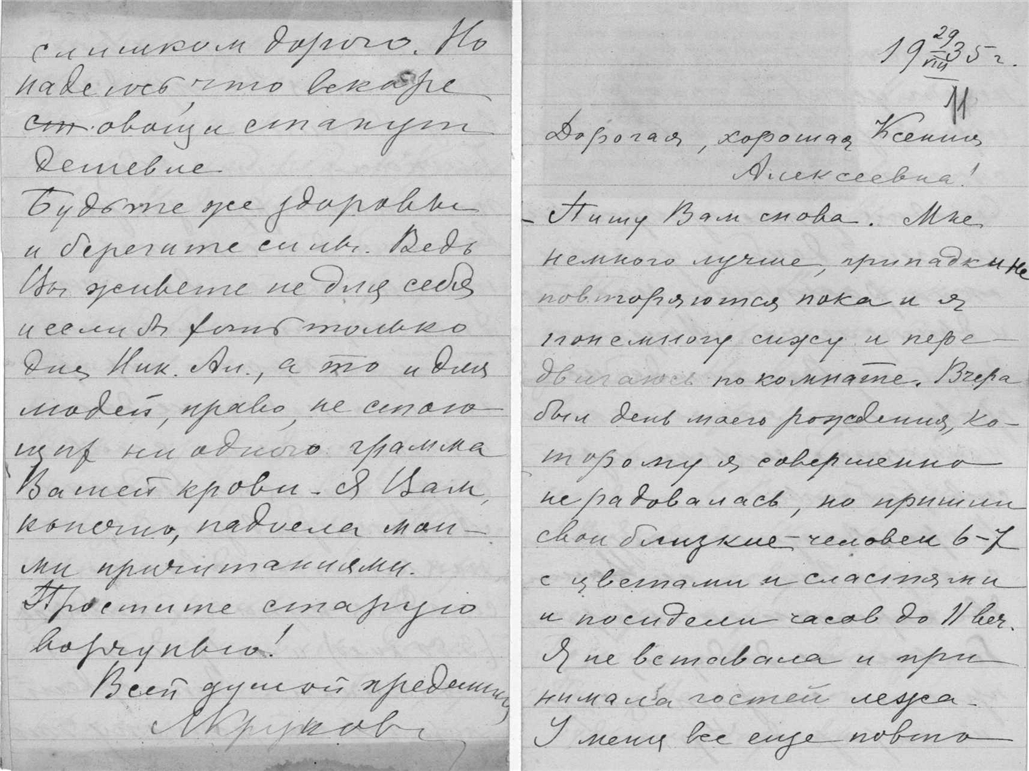 слишком дорого. Но
надеюсь, что вскоре
ст. овощи станут
дешевле
Будьте же здоровы
и берегите силы. Ведь
Вы живете не для себя
и если б хоть только
для Ник. Ал., а то и для
людей, право, не стою
щих ни одного грамма
Вашей крови. Я Вам,
конечно, надоела мои-
ми причитаниями.
Простите старую
ворчунью!
Всей душой преданная
19 29/VIII 35 г.
11
Дорогая, хорошая Ксения
Алексеевна!
Пишу Вам снова. Мне
немного лучше, припадки не
повторяются пока и я
понемногу сижу и пере-
двигаюсь по комнате. Вчера
был день моего рождения, ко-
торому я совершенно
не радовалась, но пришли
свои близкие – человек 6-7
с цветами и сластями
и посидели часов до 11 веч.
Я не вставала и при
нимала гостей лежа.
У меня все еще повто